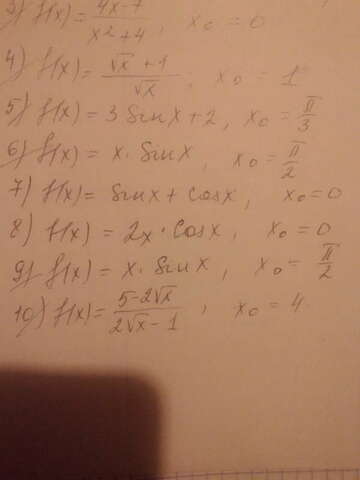 3) f(x) = \frac{4x-7}{x²+4}, x₀ = 0
4) f(x) = \frac{√x + 1}{√x}, x₀ = 1
5) f(x) = 3 Sin x + 2, x₀ = \frac{π}{3}
6) f(x) = x · Sin x, x₀ = \frac{π}{2}
7) f(x) = Sin x + Cos x, x₀ = 0
8) f(x) = 2x · Cos x, x₀ = 0
9) f(x) = x · Sin x, x₀ = \frac{π}{2}
10) f(x) = \frac{5-2√x}{2√x-1}, x₀ = 4